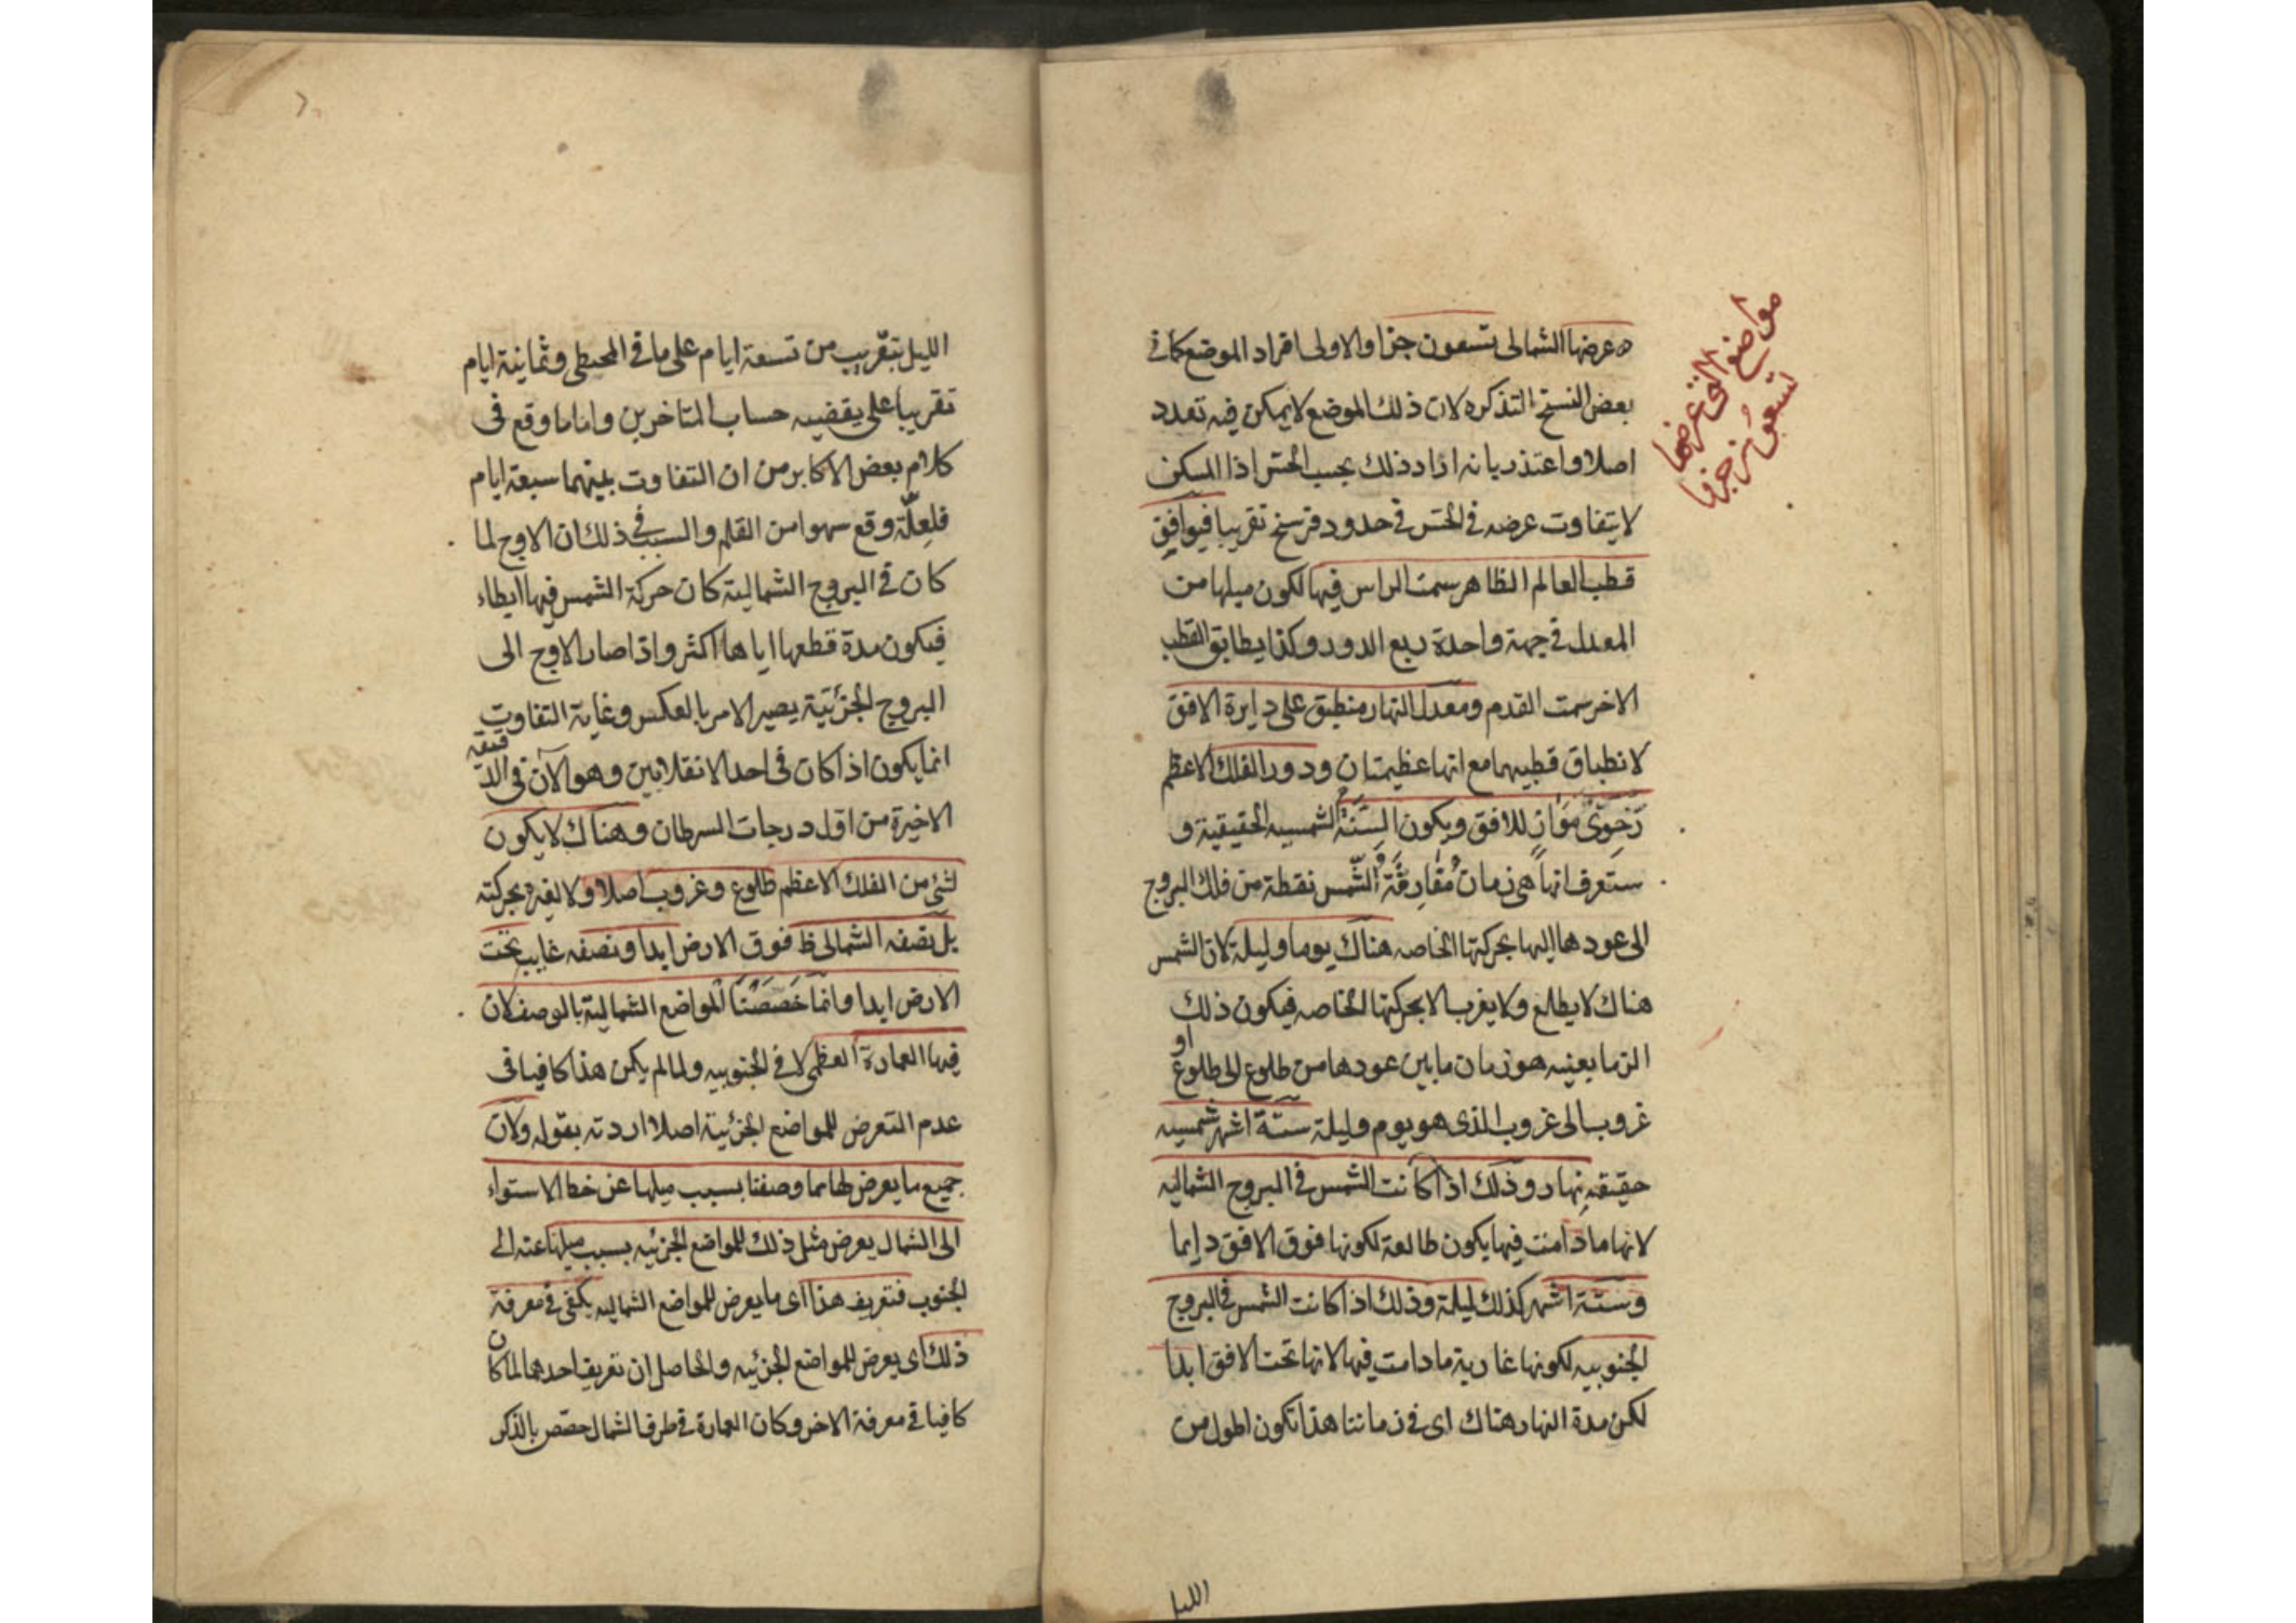 مواضع التى عرضها
تسعون جزءا
ه عرضها الشمالى تسعون جزا والاولى افراد الموضع كما فى
بعض النسخ التذكره لان ذلك الموضع لا يمكن فيه تعدد
اصلا واعتذر بانه اراد ذلك بحسب الحس اذ المسكن
لا يتفاوت عرضه فى الحس فى حدود فرسخ تقريبا فيوافق
قطب العالم الظاهر سمت الراس فيها لكون ميلها من
المعدل فى جهة واحدة ربع الدور وكذا يطابق القطب
الاخر سمت القدم ومعدل النهار منطبق على دايرة الافق
لانطباق قطبيهما مع انها عظيمتان ودور الفلك الاعظم
رَحَوِىٌّ مُوَازٍ للافق ويكون السَّنَةُ الشمسيه الحقيقية و
ستعرف انها هى زمان مُفَارِقَةِ الشَّمس نقطة من فلك البروج
الى عودها اليها بحركتها الخاصه هناك يوما وليلة لان الشمس
هناك لا يطلع ولا يغرب الا بحركتها الخاصه فيكون ذلك
الزما بعينه هو زمان ما بين عودها من طلوع الى طلوع او
غروب الى غروب الذى هو يوم وليلة ستة اشهر شمسيه
حقيقيه نهار وذلك اذا كانت الشمس فى البروج الشماليه
لانها ما دامت فيها يكون طالعة لكونها فوق الافق دايما
وستة اشهر كذلك ليلة وذلك اذا كانت الشمس فى البروج
الجنوبيه لكونها غاربة ما دامت فيها لانها تحت الافق ابدا
لكن مدة النهار هناك اى فى زماننا هذا تكون اطول من
الليل
الليل بتقريب من تسعة ايام على ما فى المجسطى وثمانية ايام
تقريبا على يقضيه حساب المتاخرين واما ما وقع فى
كلام بعض الاكابر من ان التفاوت بينهما سبعة ايام
فلعلّه وقع سهوا من القلم والسبب فى ذلك ان الاوج لما
كان فى البروج الشمالية كان حركة الشمس فيها ابطاء
فيكون مدة قطعها اياها اكثر واذا صار الاوج الى
البروج الجنوبية يصير الامر بالعكس وغاية التفاوت
انما يكون اذا كان فى احد الانقلابين وهو الآن فى الدقيقه
الاخيرة من اول درجات السرطان وهناك لا يكون
لشئ من الفلك الاعظم طلوع وغروب اصلا ولا لغيره بحركته
بل نصفه الشمالى ظ فوق الارض ابدا ونصفه غايب تحت
الارض ابدا وانما خَصَصْنَا المواضع الشمالية بالوصف لان
فيها العمارة العظمى لا فى الجنوبيه ولما لم يكن هذا كافيا فى
عدم التعرض للمواضع الجنوبية اصلا اردته بقوله ولان
جميع ما يعرض لها مما وصفنا بسبب ميلها عن خط الاستواء
الى الشمال يعرض مثل ذلك للمواضع الجنوبيه بسبب ميلها عنه الى
الجنوب فتعريف هذا اى ما يعرض للمواضع الشماليه يكفى فى معرفة
ذلك اى يعرض للمواضع الجنوبيه والحاصل ان تعريف احدهما لما كان
كافيا فى معرفة الاخر وكان العمارة فى طرف الشمال خصّص بالذكر